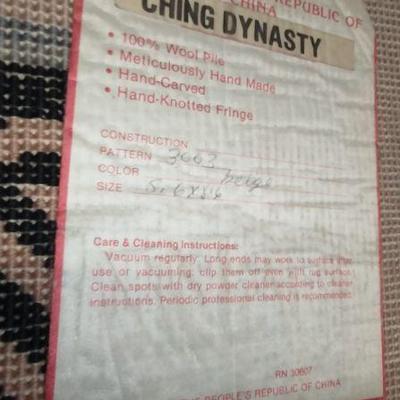 REPUBLIC OF
CHINA
CHING DYNASTY
• 100% Wool Pile
• Meticulously Hand Made
• Hand-Carved
• Hand-Knotted Fringe
CONSTRUCTION
PATTERN 3663
COLOR beige
SIZE 5.6X8.6
Care & Cleaning Instructions:
Vacuum regularly. Long ends may work to surface after
use or vacuuming: clip them off even with rug surface.
Clean spots with dry powder cleaner according to cleaner
instructions. Periodic professional cleaning is recommended.
RN 30607
THE PEOPLE'S REPUBLIC OF CHINA